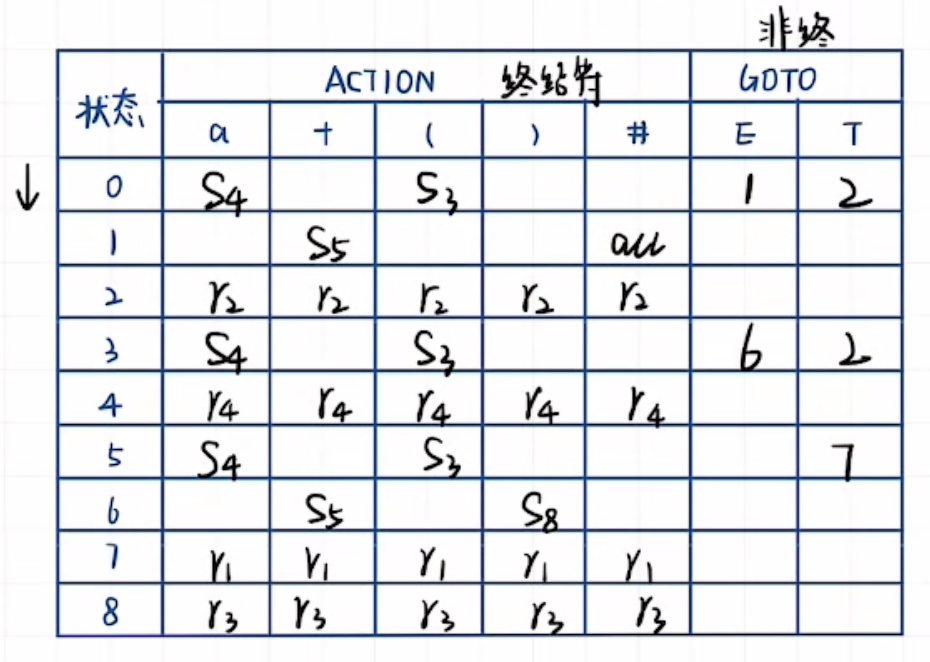 非终
状态 ACTION 终结符 GOTO
a + ( ) # E T
↓ 0 S4 S3 1 2
1 S5 acc
2 r2 r2 r2 r2 r2
3 S4 S3 6 2
4 r4 r4 r4 r4 r4
5 S4 S3 7
6 S5 S8
7 r1 r1 r1 r1 r1
8 r3 r3 r3 r3 r3